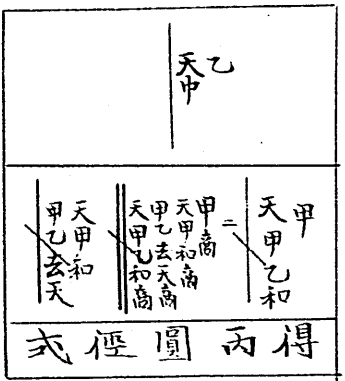 乙
天巾
甲
天甲乙和
二
甲商
天甲和商
甲乙去天商
天甲乙和商
天甲和
甲乙去天
得丙圓徑式